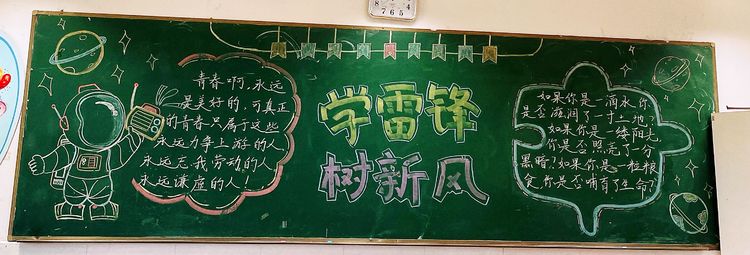 8 4
7 6 5
青春啊,永远
是美好的,可真正
的青春只属于这些
永远力争上游的人
永远忘我劳动的人
永远谦虚的人!
学雷锋
树新风
如果你是一滴水,你
是否滋润了一寸土地?
如果你是一缕阳光,
你是否照亮了一分
黑暗?如果你是一粒粮
食,你是否哺育了生命?